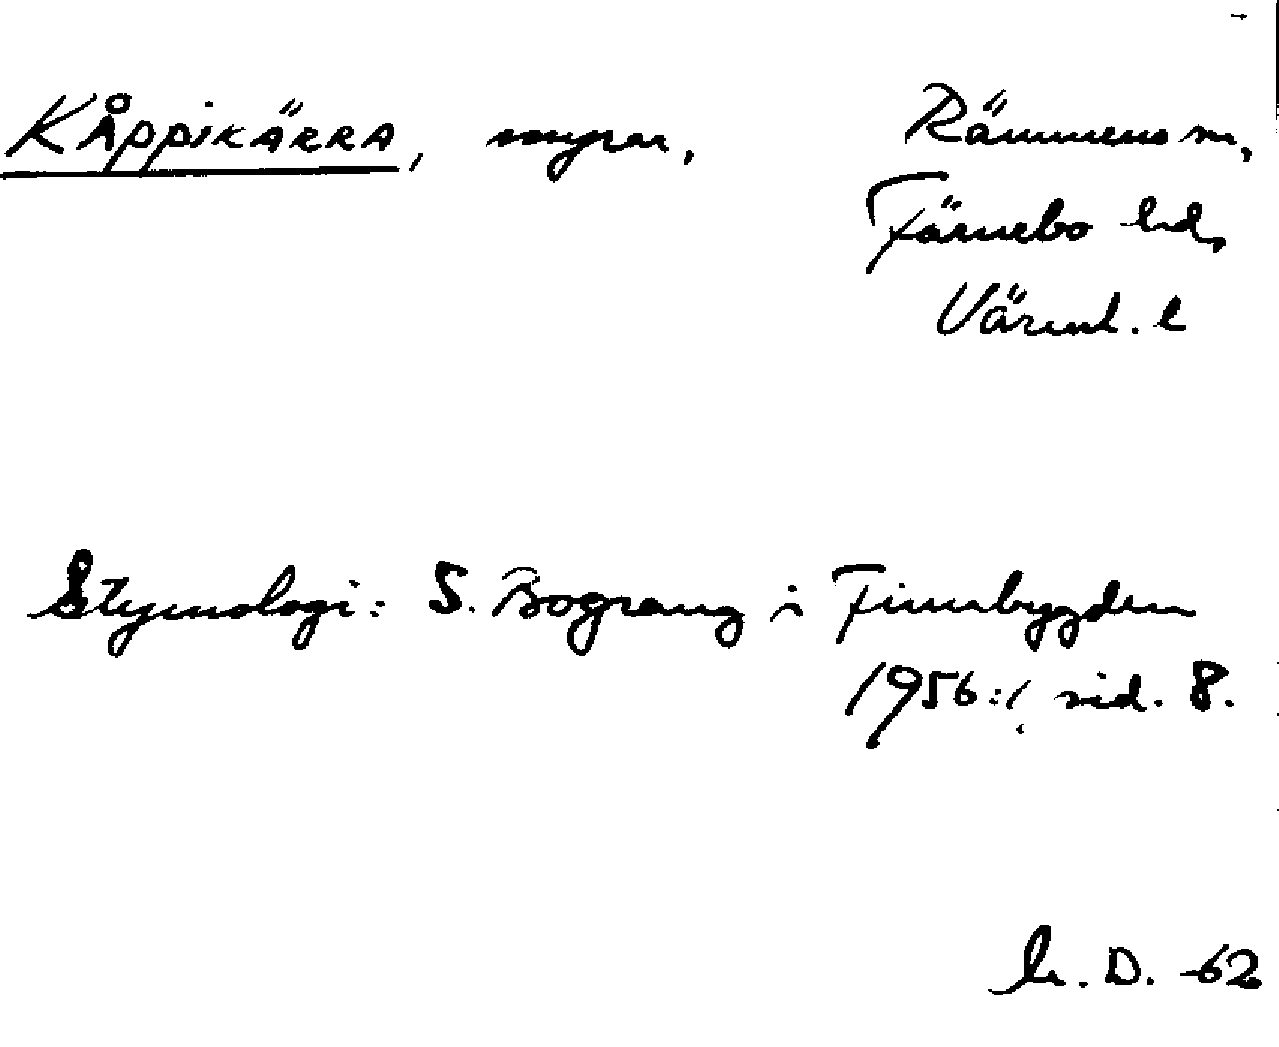 KÅPPIKÄRRA, myrar, Rämmens sn,
Färnebo hd,
Värml. l
Etymologi: S. Bograng i Finnbygden
1956:1, sid. 8.
D. -62